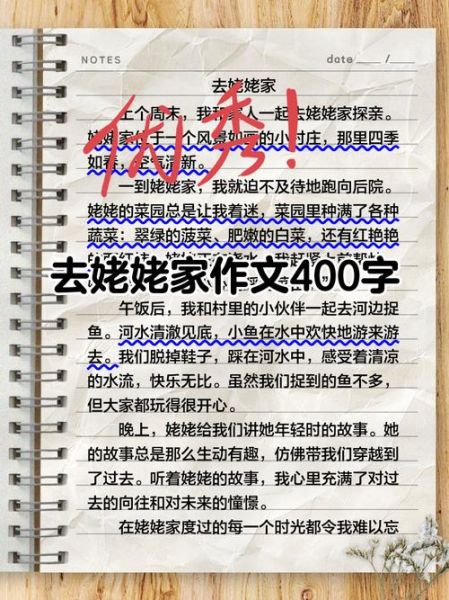 NOTES
date ___ /___
去姥姥家
优秀!
上个周末，我和家人一起去姥姥家探亲。
姥姥家位于一个风景如画的小村庄，那里四季
如春，空气清新。
一到姥姥家，我就迫不及待地跑向后院。
姥姥的菜园总是让我着迷，菜园里种满了各种
蔬菜：翠绿的菠菜、肥嫩的白菜，还有红艳艳
去姥姥家作文400字
午饭后，我和村里的小伙伴一起去河边捉
鱼。河水清澈见底，小鱼在水中欢快地游来游
去。我们脱掉鞋子，踩在河水中，感受着清凉
的水流，快乐无比。虽然我们捉到的鱼不多，
但大家都玩得很开心。
晚上，姥姥给我们讲她年轻时的故事。她
的故事总是那么生动有趣，仿佛带我们穿越到
了过去。听着姥姥的故事，我心里充满了对过
去的向往和对未来的憧憬。
在姥姥家度过的每一个时光都令我难以忘